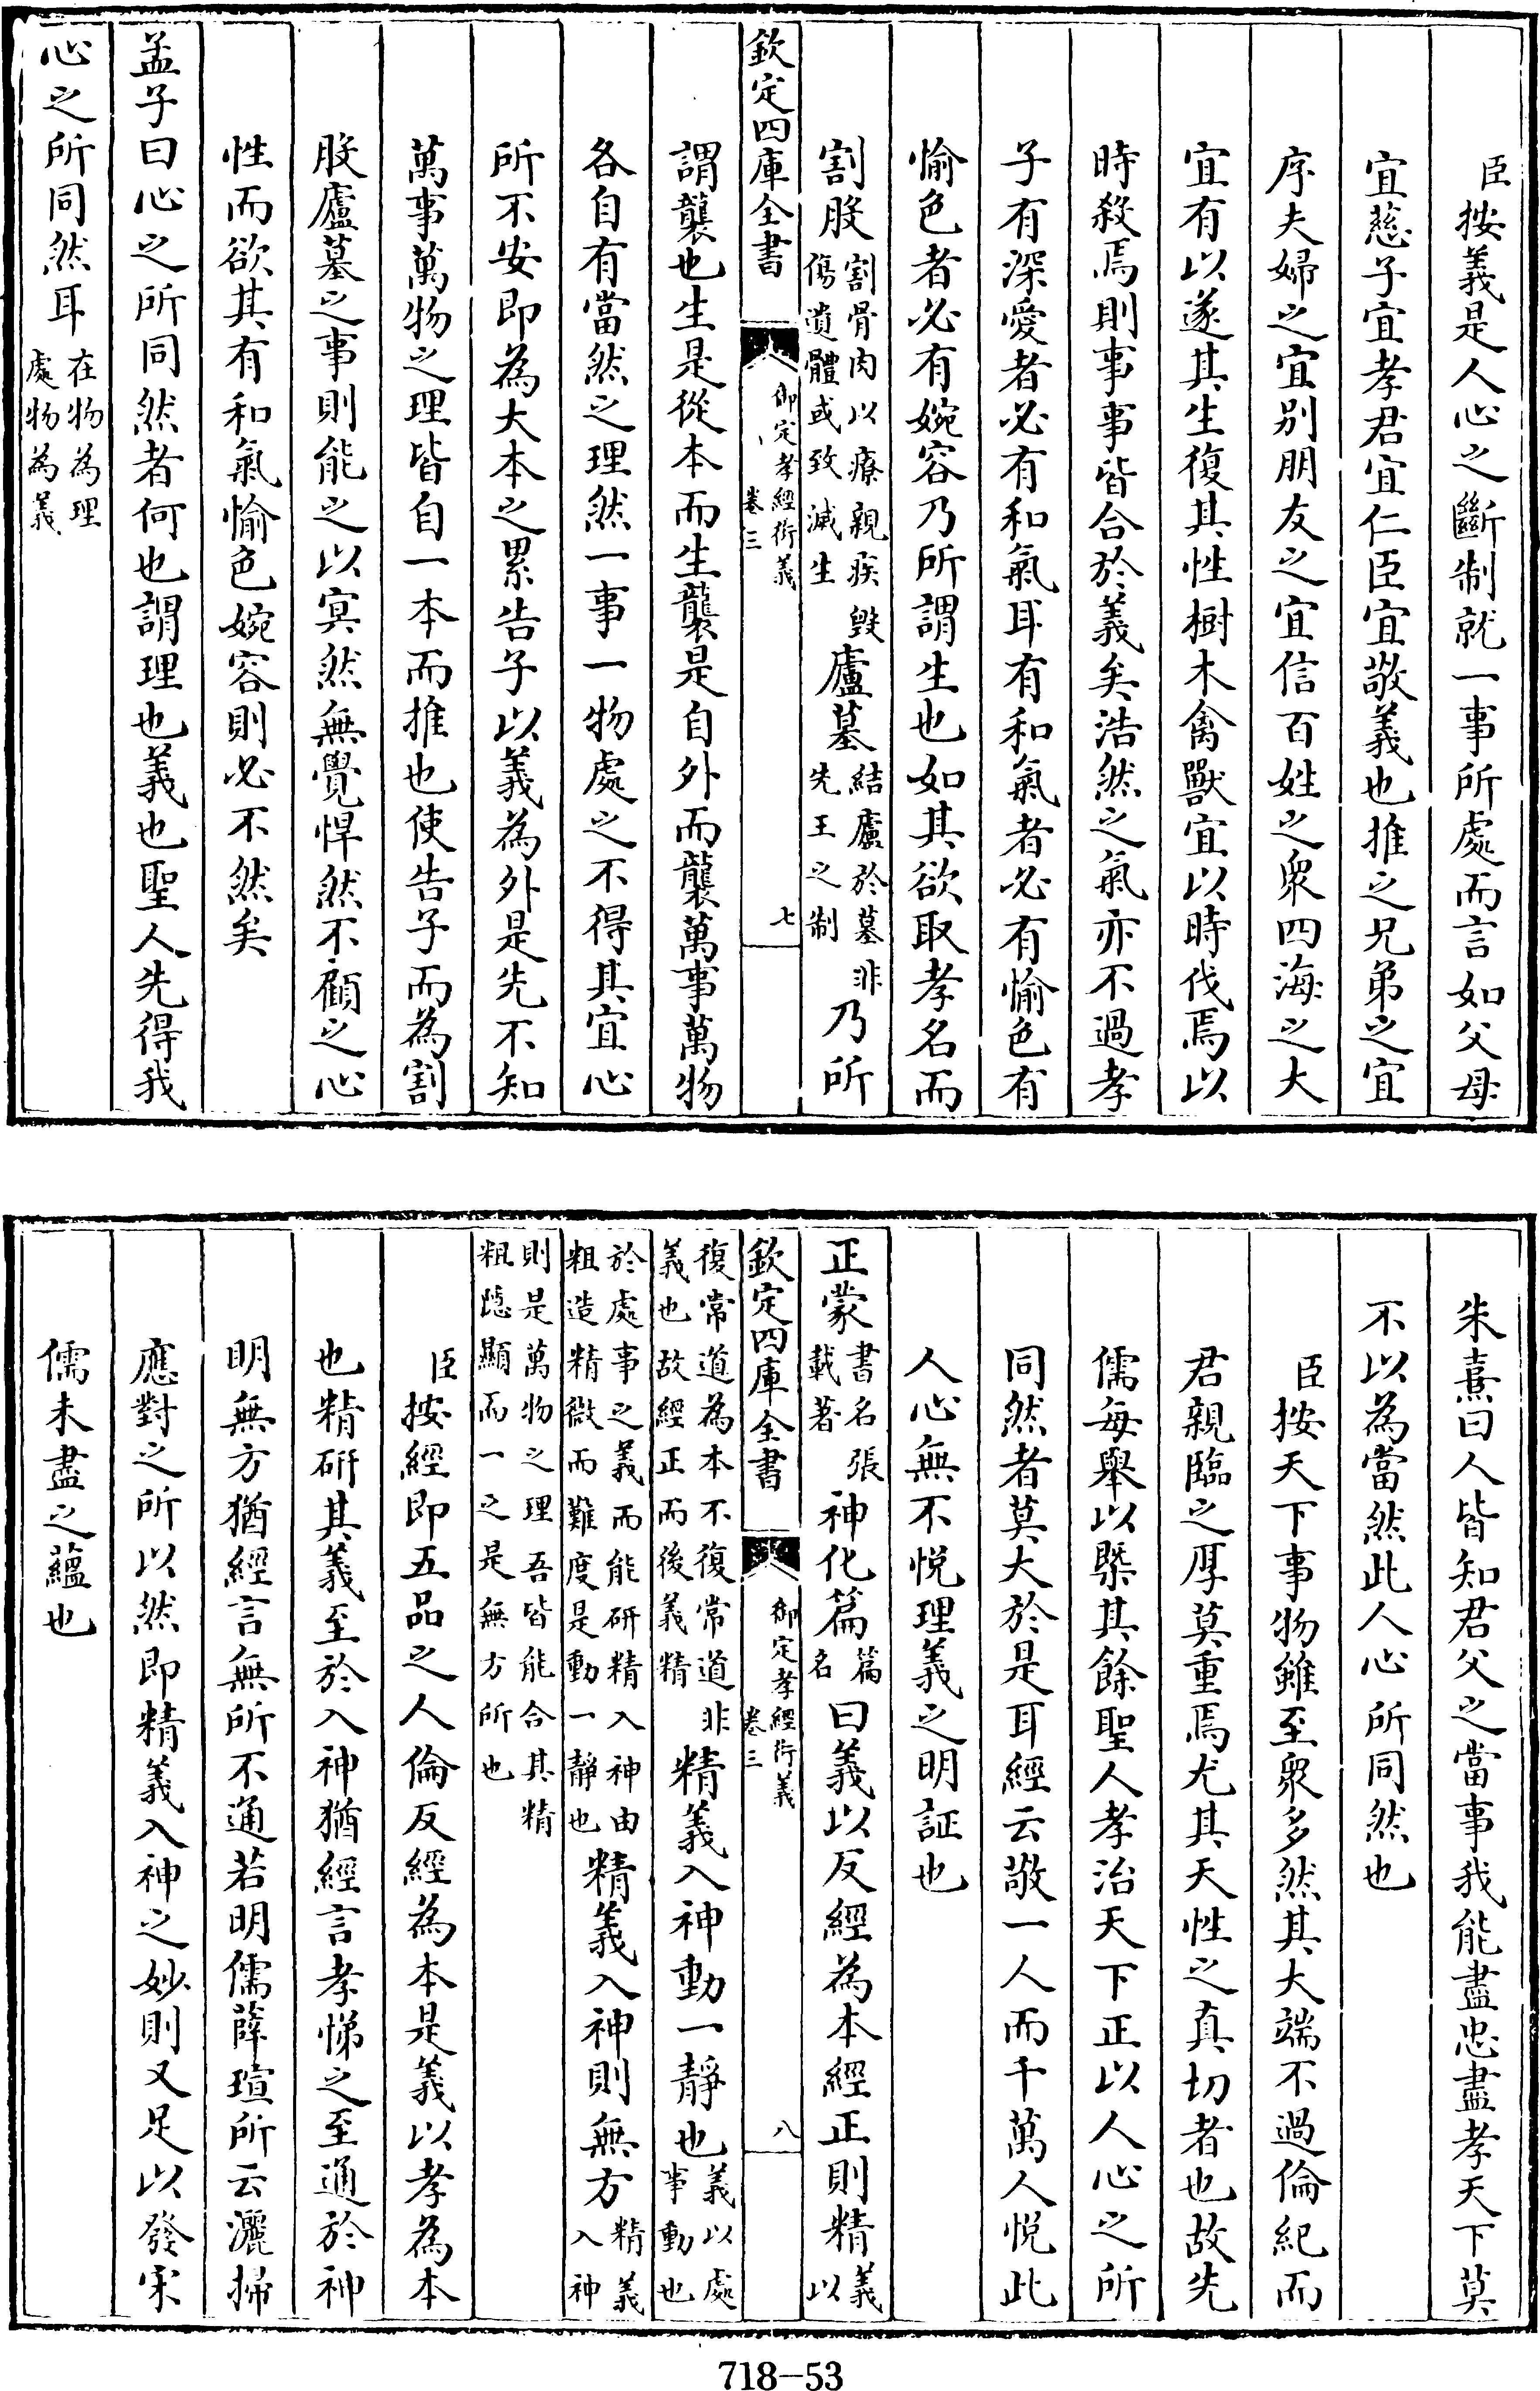 臣按義是人心之斷制就一事所處而言如父母
宜慈子宜孝君宜仁臣宜敬義也推之兄弟之宜
序夫婦之宜别朋友之宜信百姓之衆四海之大
宜有以遂其生復其性樹木禽獸宜以時伐焉以
時殺焉則事事皆合於義矣浩然之氣亦不過孝
子有深愛者必有和氣耳有和氣者必有愉色有
愉色者必有婉容乃所謂生也如其欲取孝名而
割股割骨肉以療親疾毀傷遺體或致滅生廬墓結廬於墓非先王之制乃所
欽定四庫全書 御定孝經衍義 卷三 七
謂襲也生是從本而生襲是自外而襲萬事萬物
各自有當然之理然一事一物處之不得其宜心
所不安即為大本之累告子以義為外是先不知
萬事萬物之理皆自一本而推也使告子而為割
股廬墓之事則能之以冥然無覺悍然不顧之心
性而欲其有和氣愉色婉容則必不然矣
孟子曰心之所同然者何也謂理也義也聖人先得我
心之所同然耳在物為理處物為義
朱熹曰人皆知君父之當事我能盡忠盡孝天下莫
不以為當然此人心所同然也
臣按天下事物雖至衆多然其大端不過倫紀而
君親臨之厚莫重焉尤其天性之真切者也故先
儒每舉以槩其餘聖人孝治天下正以人心之所
同然者莫大於是耳經云敬一人而千萬人悅此
人心無不悅理義之明証也
正蒙書名張載著神化篇篇名曰義以反經為本經正則精義以
欽定四庫全書 御定孝經衍義 卷三 八
復常道為本不復常道非義也故經正而後義精精義入神動一靜也義以處事動也
於處事之義而能研精入神由粗造精微而難度是動一靜也精義入神則無方精義入神
則是萬物之理吾皆能合其精粗隱顯而一之是無方所也
臣按經即五品之人倫反經為本是義以孝為本
也精研其義至於入神猶經言孝悌之至通於神
明無方猶經言無所不通若明儒薛瑄所云灑掃
應對之所以然即精義入神之妙則又足以發宋
儒未盡之蘊也
718-53